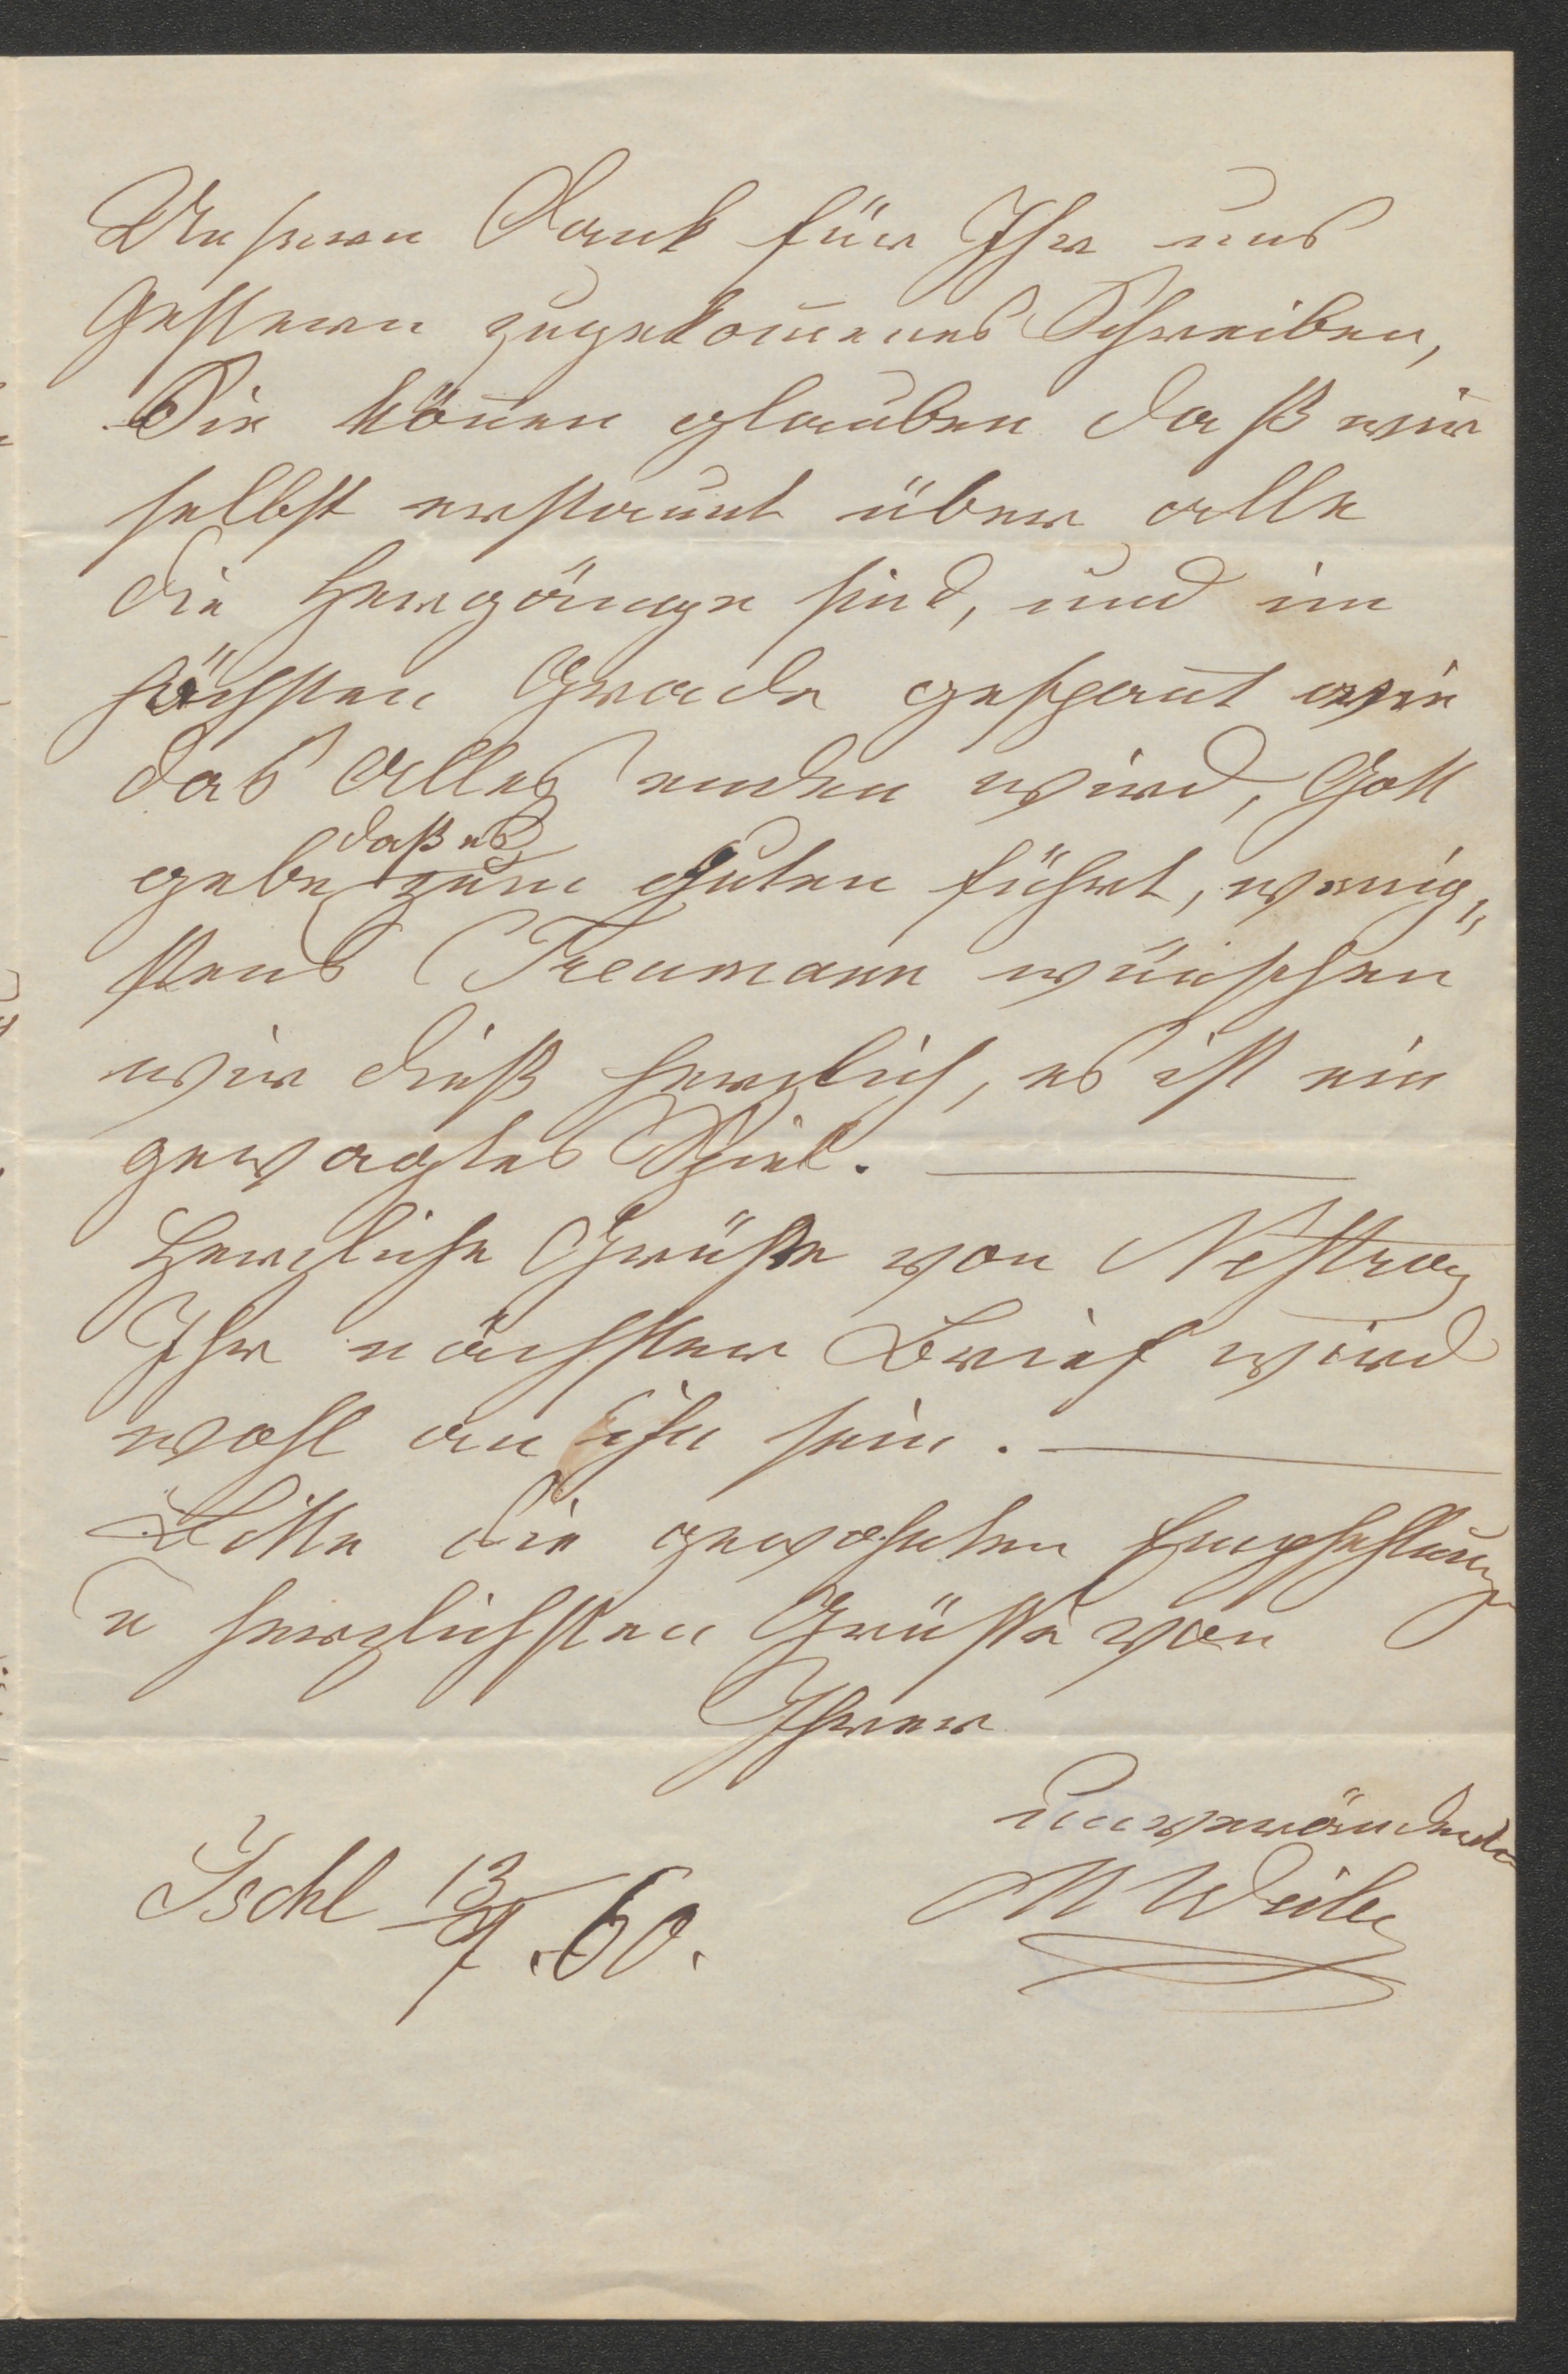 Unsern Dank für Ihr uns
Gestern zugekom̅enes Schreiben,
Sie kön̅en glauben daß wir
selbst erstaunt über alle
die Hergänge sind, und im
höchsten Grade gespan̅t wie
das Alles enden wird, Gott
gebe daß es zum guten führt, wenig„
stens Treumann wünschen
wir dieß herzlich, es ist ein
gewagtes Spiel. —
Herzliche Grüße von Nestroy
Ihr nächster Brief wird
wohl an ihn sein. —
Bitte die gewohnten Empfehlung
u herzlichsten Grüße von
Ihrer
unverändert
M Weiler
Ischl 13/7. 60.